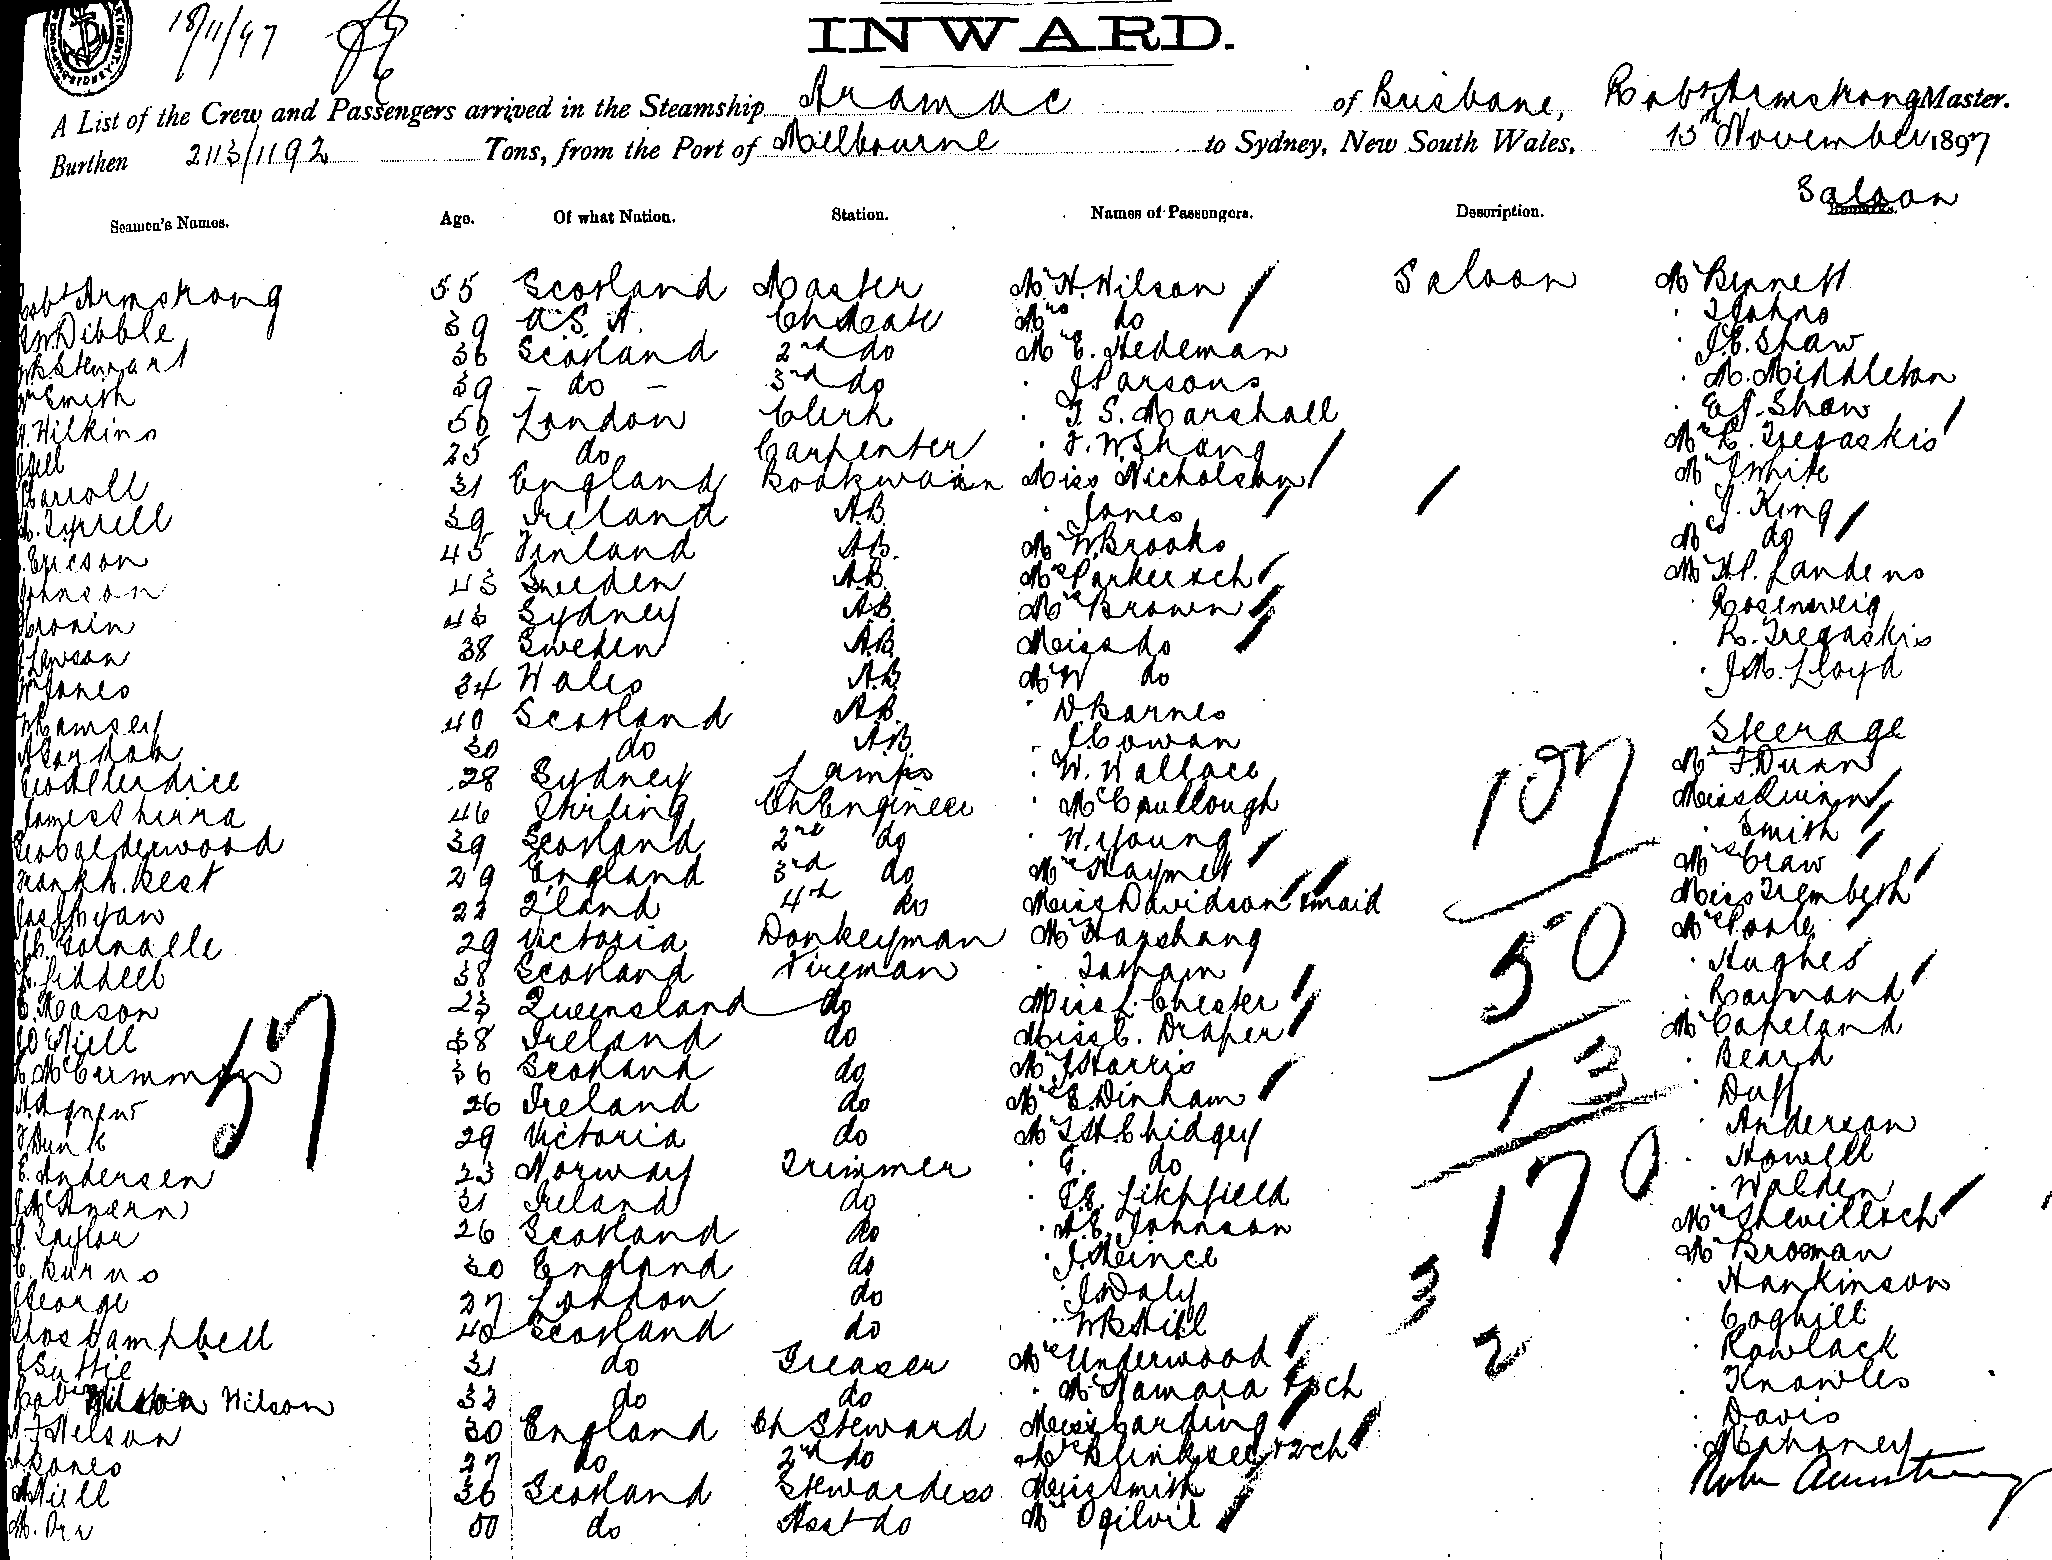 18/11/97
INWARD.
A List of the Crew and Passengers arrived in the Steamship Aramac of Brisbane, Robt Armstrong Master.
Burthen 2113/1192 Tons, from the Port of Melbourne to Sydney, New South Wales, 15th November 1897
Saloon
Seamen's Names. Age. Of what Nation. Station. Names of Passengers. Description. Remarks.
Robt Armstrong 55 Scotland Master Mr H. Wilson Saloon Mr Bennett
Dibble 39 U.S.A. Ch Mate Mrs do Johns
Stewart 36 Scotland 2nd do Mr E. Hedeman J.E. Shaw
Smith 39 - do - 3rd do J Parsons M. Middleton
Wilkins 50 London Clerk T. S. Marshall E.J. Shaw
25 do Carpenter J. W Shang Mrs R. Tregaskis
Carroll 31 England Miss Nicholson Mr J White
Tyrrell 39 Ireland A.B. Jones J. King
Ericson 45 Finland A.B. Mr W Brooks Mrs do
Johnson 43 Sweden A.B. Mrs Parker & ch Mr H.P. Landens
Cronin 43 Sydney A.B. Mrs Brown Rosenweig
Lawson 38 Sweden A.B. Miss do R. Tregaskis
W Jones 34 Wales A.B. Mr W do J.M. Lloyd
Ramsey 40 Scotland A.B. D Barnes
A Gordon 30 do A.B. J. Cowan Steerage
Geo Allerdice 28 Sydney Lamps W. Wallace Mr F. Dunn
James Shirra 46 Stirling Ch Engineer McCullough Miss Quinn
Geo Calderwood 39 Scotland 2nd do W. Young 107 Smith
Frank h. Best 29 England 3rd do Mrs Haymes Mrs Craw
Jas Ryan 22 Q'land 4th do Miss Davidson & maid Miss Trembeth
29 Victoria Donkeyman Mr Harshang 50 Mrs Poole
R. Liddell 38 Scotland Fireman Tatham Hughes
C. Mason 23 Queensland do Miss L. Chester Raymond
J O'Neill 38 Ireland do Miss C. Draper Mr Copeland
57 36 Scotland do Mr J Harris 13 Beard
Agnew 26 Ireland do Mrs E. Dinham Duff
Dunk 29 Victoria do Mr T H Chidgey Anderson
E. Andersen 23 Norway Trimmer G. do 170 Howell
31 Ireland do Walden
J. Taylor 26 Scotland do A.E. Johnson Mrs Shevill & ch
C. Burns 30 England do J. Heince Mr Brosman
George 27 London do J. Daly 3 Hankinson
Thos Campbell 42 Scotland do W B Hill Coghill
J Suttie 31 do Greaser Mrs Underwood 2 Rowlack
Robt Wilson 32 do do McNamara & ch Knowles
Nelson 30 England Ch Steward Miss Carding Davis
Jones 27 do 2nd do Mrs & 2 ch Mahoney
Neill 36 Scotland Stewardess Miss Smith Robt Armstrong
M. Orr 50 do Asst do Mrs Ogilvie